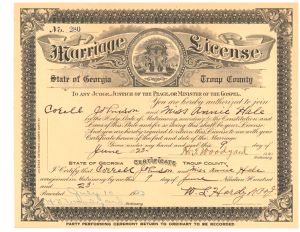 No. 280
Marriage License.
State of Georgia Troup County
To any Judge, Justice of the Peace, or Minister of the Gospel.
You are hereby authorized to join
Johnson and Miss Annie Hale
in the Holy State of Matrimony, according to the Constitution and
Laws of this State and for so doing this shall be your License.
And you are hereby required to return this License to me with your
Certificate hereon of the fact and date of the Marriage.
Given under my hand and seal this 9 day of
June 23.
STATE OF GEORGIA CERTIFICATE TROUP COUNTY.
I Certify that Johnson and Miss Annie Hale
were joined in Matrimony by me this 9 day of June
23.
Recorded
PARTY PERFORMING CEREMONY RETURN TO ORDINARY TO BE RECORDED